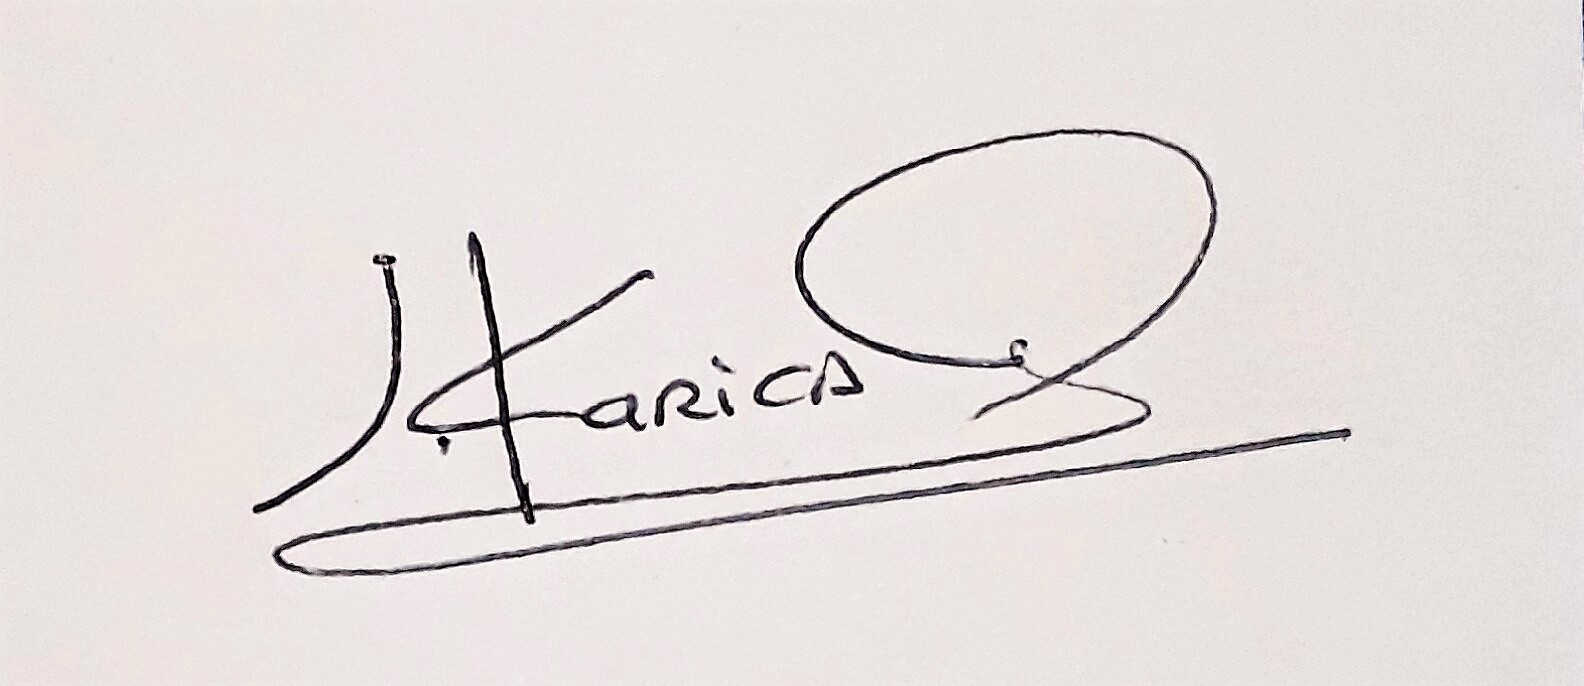 J. KARICA